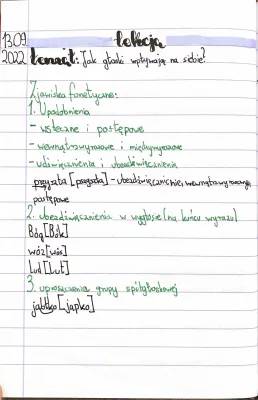 13.09 lekcja
2022 temat: Jak głoski wpływają na siebie?
Zjawiska fonetyczne:
1. Upodobnienia
- wsteczne i postępowe
- wewnątrzwyrazowe i międzywyrazowe
- udźwięcznienia i ubezdźwięcznienia
przysta [pszysta] - ubezdźwięcznienie, wewnątrzwyrazowe,
postępowe
2. ubezdźwięcznienia w wygłosie (na końcu wyrazu)
Bóg [Bók]
wóz [wós]
Lud [Lut]
3. uproszczenia grupy spółgłoskowej
jabłko [japko]